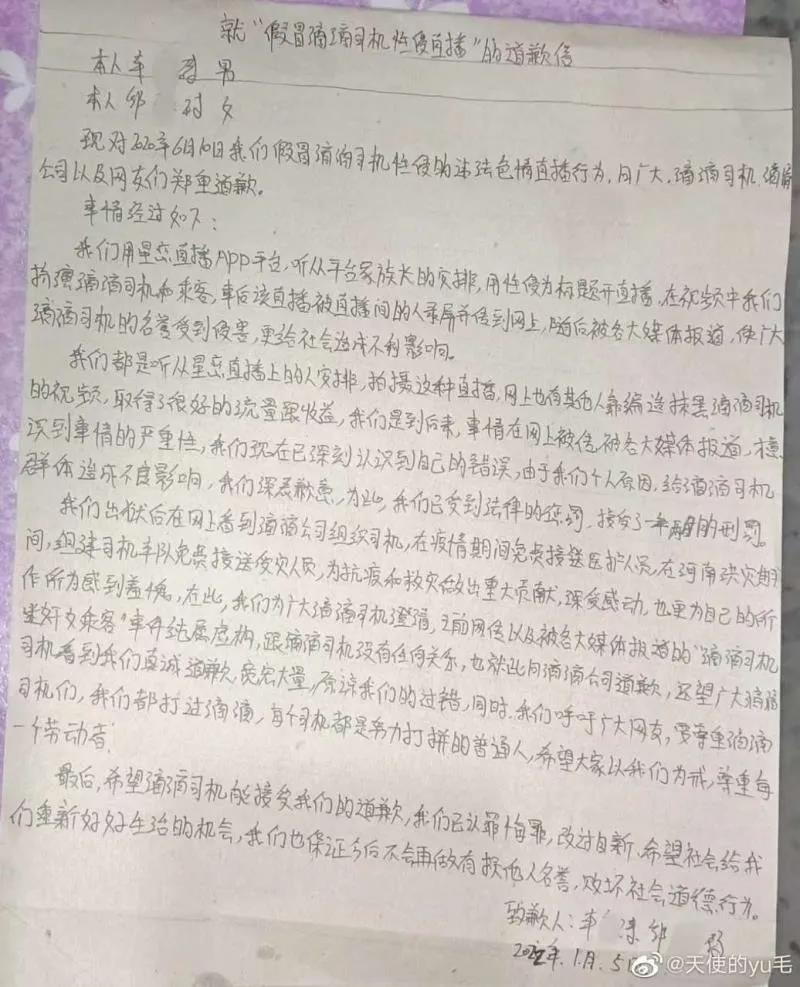 就“假冒滴滴司机性侵直播”的道歉信
本人车 男
本人邹 女
现对2020年6月10日我们假冒滴滴司机性侵的违法色情直播行为,向广大,滴滴司机、滴滴
公司以及网友们郑重道歉。
事情经过如下:
我们用星恋直播APP平台,听从平台家族长的安排,用性侵为标题开直播,在视频中我们
扮演滴滴司机和乘客,事后该直播被直播间的人录屏并传到网上,随后被各大媒体报道,使广大
滴滴司机的名誉受到侵害,更给社会造成不利影响。
我们都是听从星恋直播上的人安排,拍摄这种直播,网上也有其他人靠编造抹黑滴滴司机
的视频,取得了很好的流量跟收益,我们是到后来,事情在网上被传,被各大媒体报道,才意
识到事情的严重性,我们现在已深刻认识到自己的错误,由于我们个人原因,给滴滴司机
群体造成不良影响,我们深表歉意,为此,我们已受到法律的惩罚,接受了 的刑罚。
我们出狱后在网上看到滴滴公司组织司机,在疫情期间免费接送医护人员,在河南洪灾期
间,组建司机车队免费接送受灾人员,为抗疫和救灾做出重大贡献,深受感动,也更为自己的所
作所为感到羞愧,在此,我们为广大滴滴司机澄清,之前网传以及被各大媒体报道的“滴滴司机
迷奸女乘客”事件纯属虚构,跟滴滴司机没有任何关系,也就此向滴滴公司道歉,还望广大滴滴
司机看到我们真诚道歉,宽宏大量,原谅我们的过错,同时,我们呼吁广大网友,要尊重滴滴
司机们,我们都打过滴滴,每个司机都是努力打拼的普通人,希望大家以我们为戒,尊重每
一个劳动者。
最后,希望滴滴司机能接受我们的道歉,我们已认罪悔罪,改过自新,希望社会给我
们重新好好生活的机会,我们也保证今后不会再做有损他人名誉,败坏社会道德行为。
致歉人:车 邹
2022年.1月.5日
@天使的yu毛